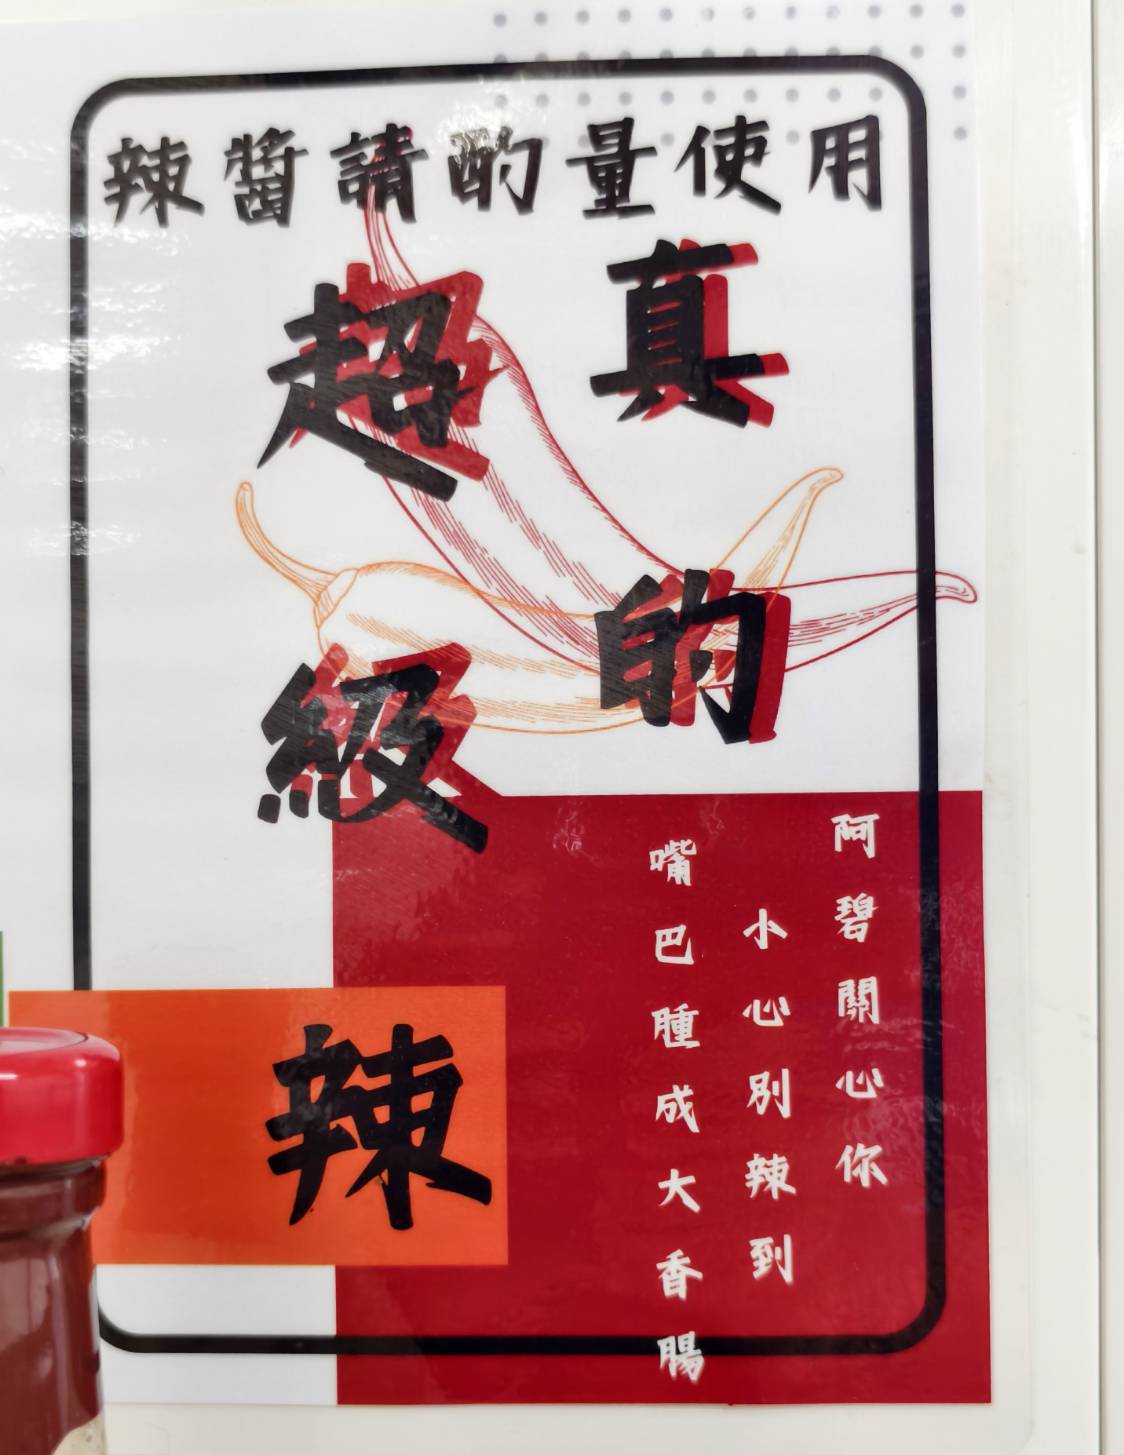 辣醬請酌量使用
真的
超級辣
阿碧關心你
小心別辣到
嘴巴腫成大香腸